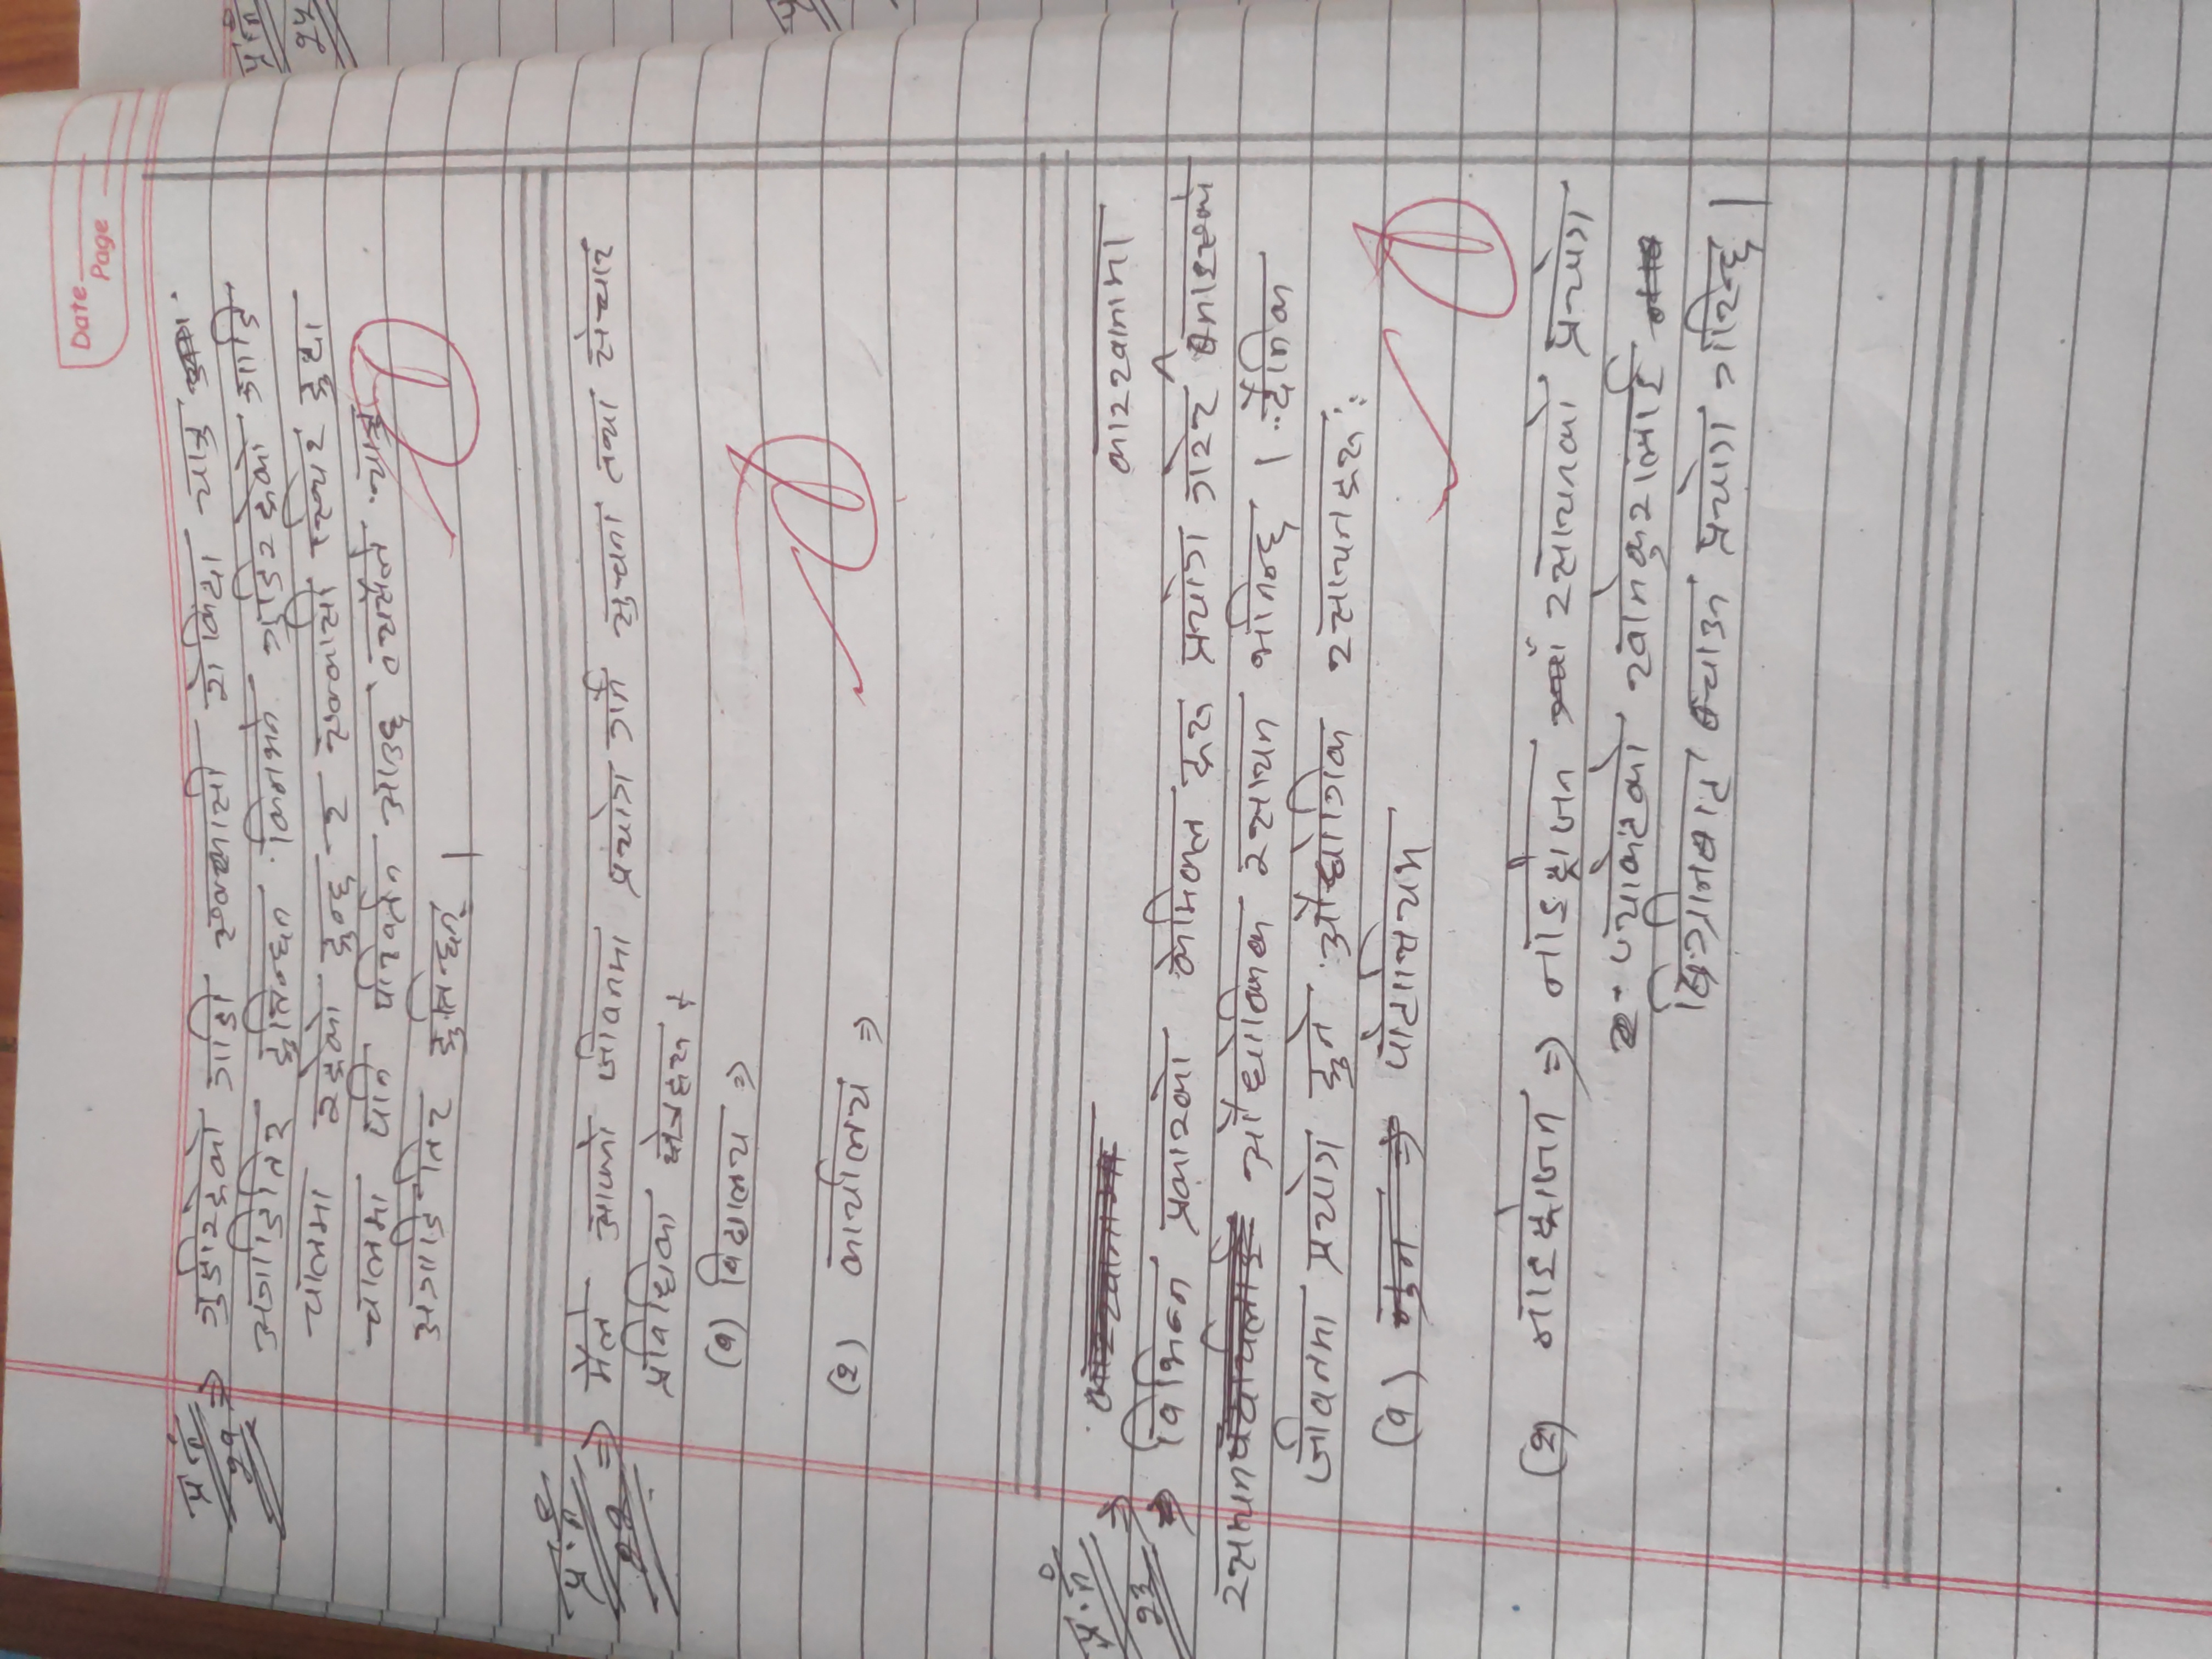 Date
Page
प्र.नं २१ ⇒ गुडीरहेको गाडी एक्कासी रोकिदा यात्रु
अगाडितिर हुत्तिन्छन किनभने गुडिरहेको गाडि
चालमा रहेको हुन्छ र एक्कासी स्थिर हुदा
चालमा पनि परिवर्तन आउछ त्यसैले यात्रु
अगाडि तिर हुत्तिन्छन् |
प्र.नं २२ ⇒ मैले आफ्नो जीवनमा प्रयोग गर्ने सुचना तथा संचार
प्रविधिका क्षेत्रहरु
(१) विद्यालय ⇒
(२) कार्यालय ⇒
प्र.नं २३ ⇒ कारखानामा
⇒ विभिन्न प्रकारको केमिकल हरु प्रयोग गरेर बनाइएको
रसायन औद्योकिक रसायन भनिन्छ । दैनिक
जीवनमा प्रयोग हुने औद्योगिक रसायनहरु :
(१) पोटासियम
(२) नाइट्रोजन ⇒ नाइट्रोजन रसायनको प्रयोग
प्याकेटको खानेकुरालाई
बिग्रीनबाट बचाउन प्रयोग गरिन्छ |
प्र.नं
२५